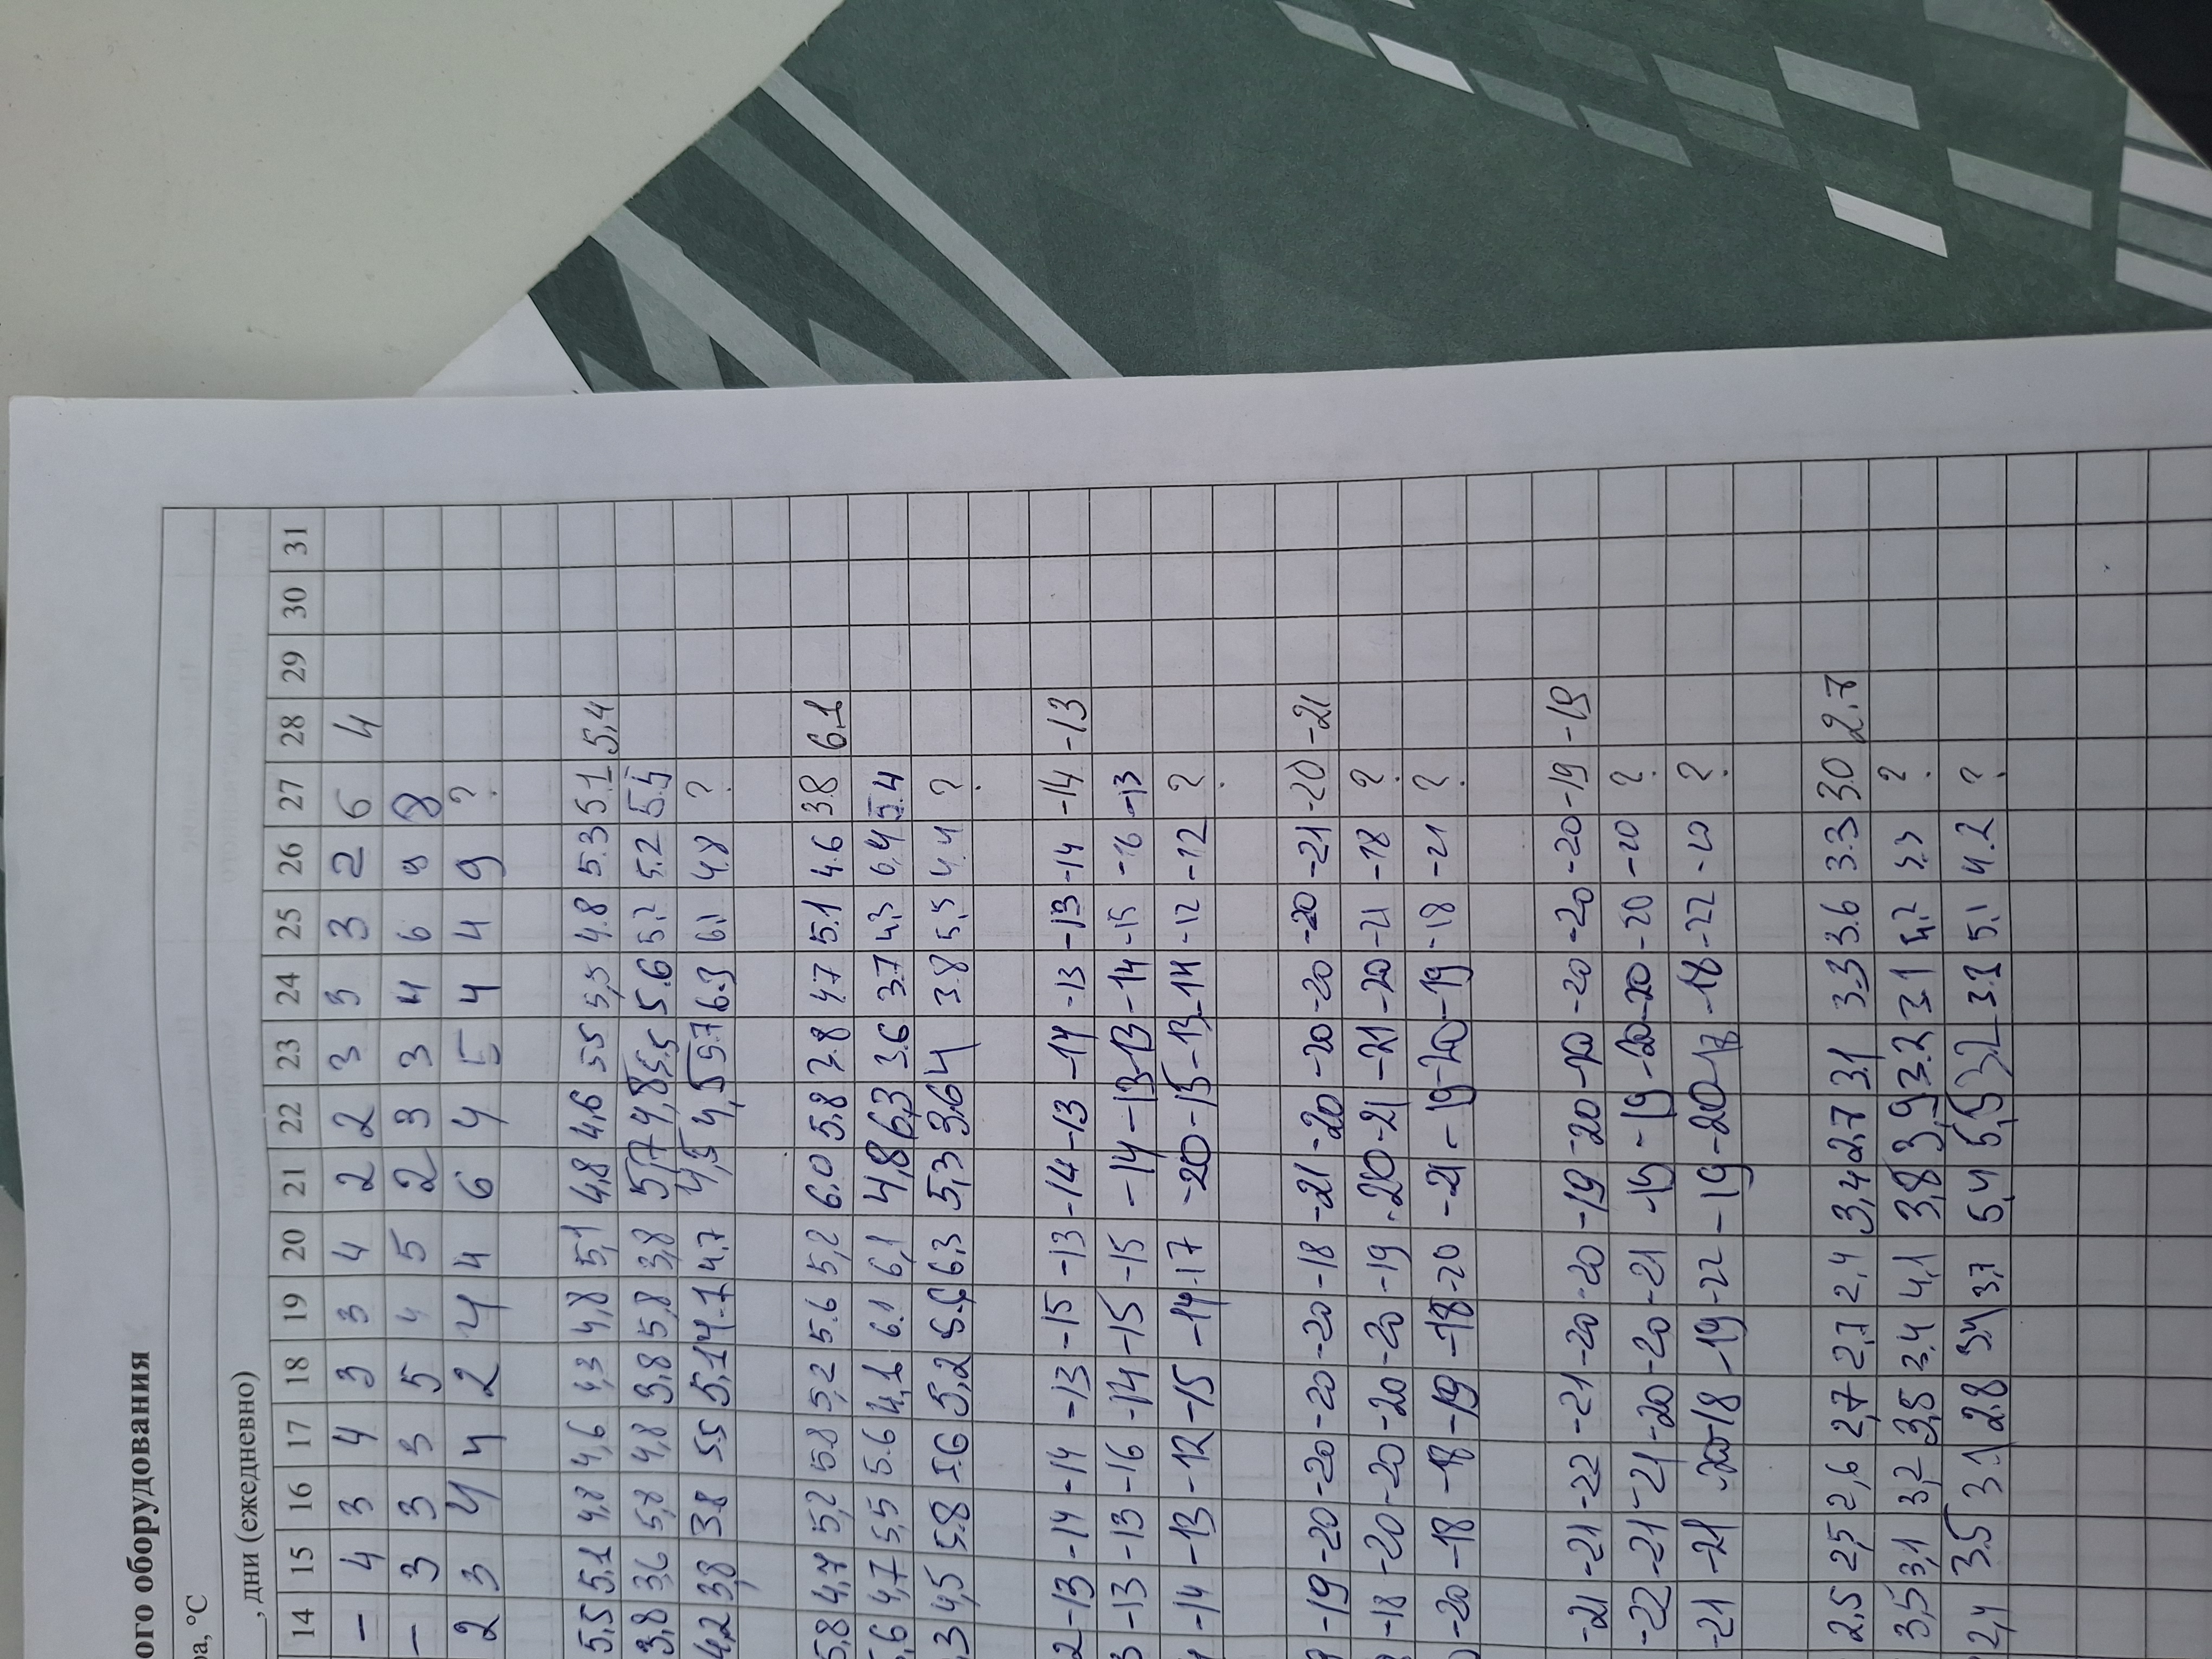 ого оборудования
ра, °С
, дни (ежедневно)
14 15 16 17 18 19 20 21 22 23 24 25 26 27 28 29 30 31
— 4 3 4 3 3 4 2 2 3 3 3 2 6 4
— 3 3 3 5 4 5 2 3 3 4 6 9 8
2 3 4 4 2 4 4 6 4 5 4 4 9 ?
5,5 5.1 4,8 4,6 4,3 4,8 5,1 4,8 4,6 5.5 5,5 4.8 5.3 5.1 5,4
3,8 3,6 5,8 4,8 3,8 5,8 3,8 5,7 4,8 5.5 5.6 5,2 5.2 5.5
4,2 3,8 3.8 5.5 5,1 4.7 4,7 4,5 4,5 5.7 6.3 6,1 4.8 ?
5,8 4,7 5,2 5.8 5,2 5.6 5,2 6,0 5,8 4.7 5.1 4.6 3.8 6.1
,6 4,7 5,5 5.6 4,1 6.1 6,1 4,8 6,3 3.6 3.7 4,3 6,4 5.4
,3 4,5 5.8 5,2 5.6 6,3 5,3 3,6 4 3.8 5,5 4.4 ?
2 -13 -14 -14 -13 -15 -13 -14 -13 -14 -13 -13 -14 -14 -13
3 -13 -13 -16 -14 -15 -15 -14 -13 -13 -14 -15 -16 -13
-14 -13 -12 -15 -14 -17 -20 -15 -13 -14 -12 -12 ?
-19 -20 -20 -20 -20 -18 -21 -20 -20 -20 -20 -21 -20 -21
-18 -20 -20 -20 -20 -19 -20 -21 -21 -20 -21 -18 ?
-20 -18 -18 -19 -18 -20 -21 -19 -20 -19 -18 -21 ?
-21 -21 -22 -21 -20 -20 -19 -20 -20 -20 -20 -20 -19 -19
-22 -21 -21 -20 -20 -21 -19 -19 -20 -20 -20 -20 ?
-21 -21 -20 -18 -19 -22 -19 -20 -17 -18 -22 -20 ?
2,5 2,5 2,6 2,7 2,7 2,4 3,4 2,7 3.1 3.3 3.6 3.3 3.0 2.7
3,5 3,1 3,2 3,5 3,4 4,1 3,8 3,9 3.2 3.1 ?
2,4 3.5 3.1 2.8 3.4 3,7 5,4 5,5 3,2 3.3 5.1 4.2 ?